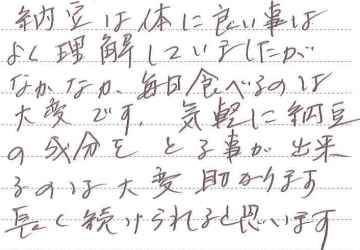 納豆は体に良い事は
よく理解していましたが
なかなか、毎日食べるのは
大変です。気軽に納豆
の成分をとる事が出来
るのは大変助かります
長く続けられると思います